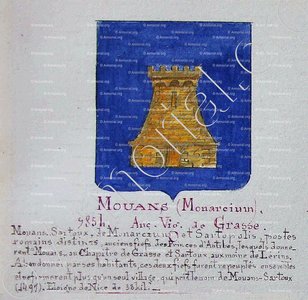 MOUANS (Monarcium),
983h. Anc. Vig. de Grasse.
Mouans, Sartoux, de Monarcium et Sartopolis, postes
romains distincts, anciens fiefs des Princes d'Antibes, lesquels donnè-
rent Mouans au Chapitre de Grasse et Sartoux aux moines de Lérins.
Abandonnés par ses habitants, ces deux fiefs furent repeuplés ensembles
et ne formèrent plus qu'un seul village qui prit le nom de Mouans-Sartoux
(1497). Eloigné de Nice de 36kil.